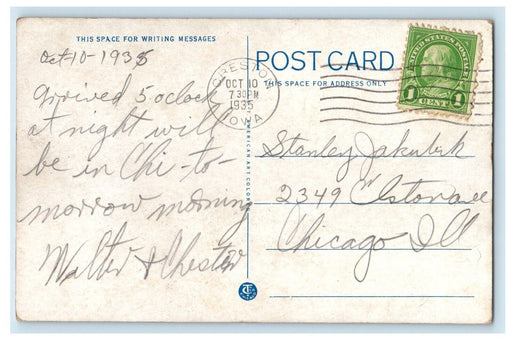 THIS SPACE FOR WRITING MESSAGES
Oct-10-1935
Arrived 5 oclock
at night will
be in Chi-to-
morrow morning
Walter & Chester
POST CARD
THIS SPACE FOR ADDRESS ONLY
CRESTON
OCT 10
730PM
1935
IOWA
UNITED STATES POSTAGE
1 CENT 1
AMERICAN ART COLORED
Stanley Jakubik
2349 Elston ave
Chicago Ill